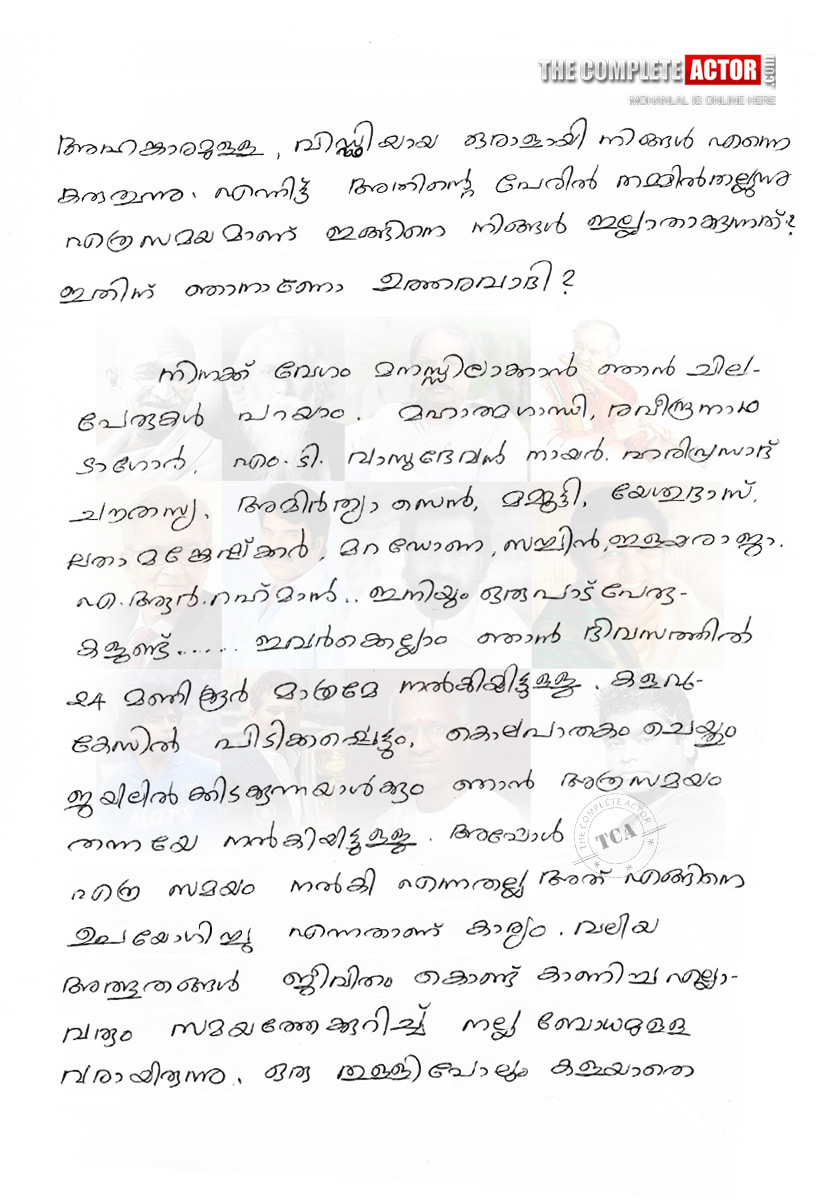 THE COMPLETE ACTOR .com
MOHANLAL IS ONLINE HERE
അഹങ്കാരമുള്ള, വിഡ്ഢിയായ ഒരാളായി നിങ്ങൾ എന്നെ
കരുതുന്നു. എന്നിട്ട് അതിന്റെ പേരിൽ തമ്മിൽതല്ലുന്നു
എത്രസമയമാണ് ഇങ്ങിനെ നിങ്ങൾ ഇല്ലാതാക്കുന്നത്?
ഇതിന് ഞാനാണോ ഉത്തരവാദി?
നിനക്ക് വേഗം മനസ്സിലാക്കാൻ ഞാൻ ചില-
പേരുകൾ പറയാം. മഹാത്മഗാന്ധി, രവീന്ദ്രനാഥ
ടാഗോർ, എം.ടി. വാസുദേവൻ നായർ. ഹരിപ്രസാദ്
ചൗരസ്യ, അമിർത്യാ സെൻ, മമ്മൂട്ടി, യേശുദാസ്,
ലതാ മങ്കേഷ്ക്കർ, മറഡോണ, സച്ചിൻ, ഇളയരാജാ.
എ.ആർ.റഹ്മാൻ.. ഇനിയും ഒരുപാട് പേരു-
കളുണ്ട്...... ഇവർക്കെല്ലാം ഞാൻ ദിവസത്തിൽ
24 മണിക്കൂർ മാത്രമേ നൽകിയിട്ടുള്ളൂ. കളവു-
കേസിൽ പിടിക്കപ്പെട്ടും, കൊലപാതകം ചെയ്തും
ജയിലിൽ കിടക്കുന്നയാൾക്കും ഞാൻ അത്രസമയം
തന്നയേ നൽകിയിട്ടുള്ളൂ. അപ്പോൾ
THE COMPLETE ACTOR
TCA
എത്ര സമയം നൽകി എന്നതല്ല അത് എങ്ങിനെ
ഉപയോഗിച്ചു എന്നതാണ് കാര്യം. വലിയ
അത്ഭുതങ്ങൾ ജീവിതം കൊണ്ട് കാണിച്ച എല്ലാ-
വരും സമയത്തേക്കുറിച്ച് നല്ല ബോധമുള്ള
വരായിരുന്നു. ഒരു തുള്ളിപോലും കളയാതെ